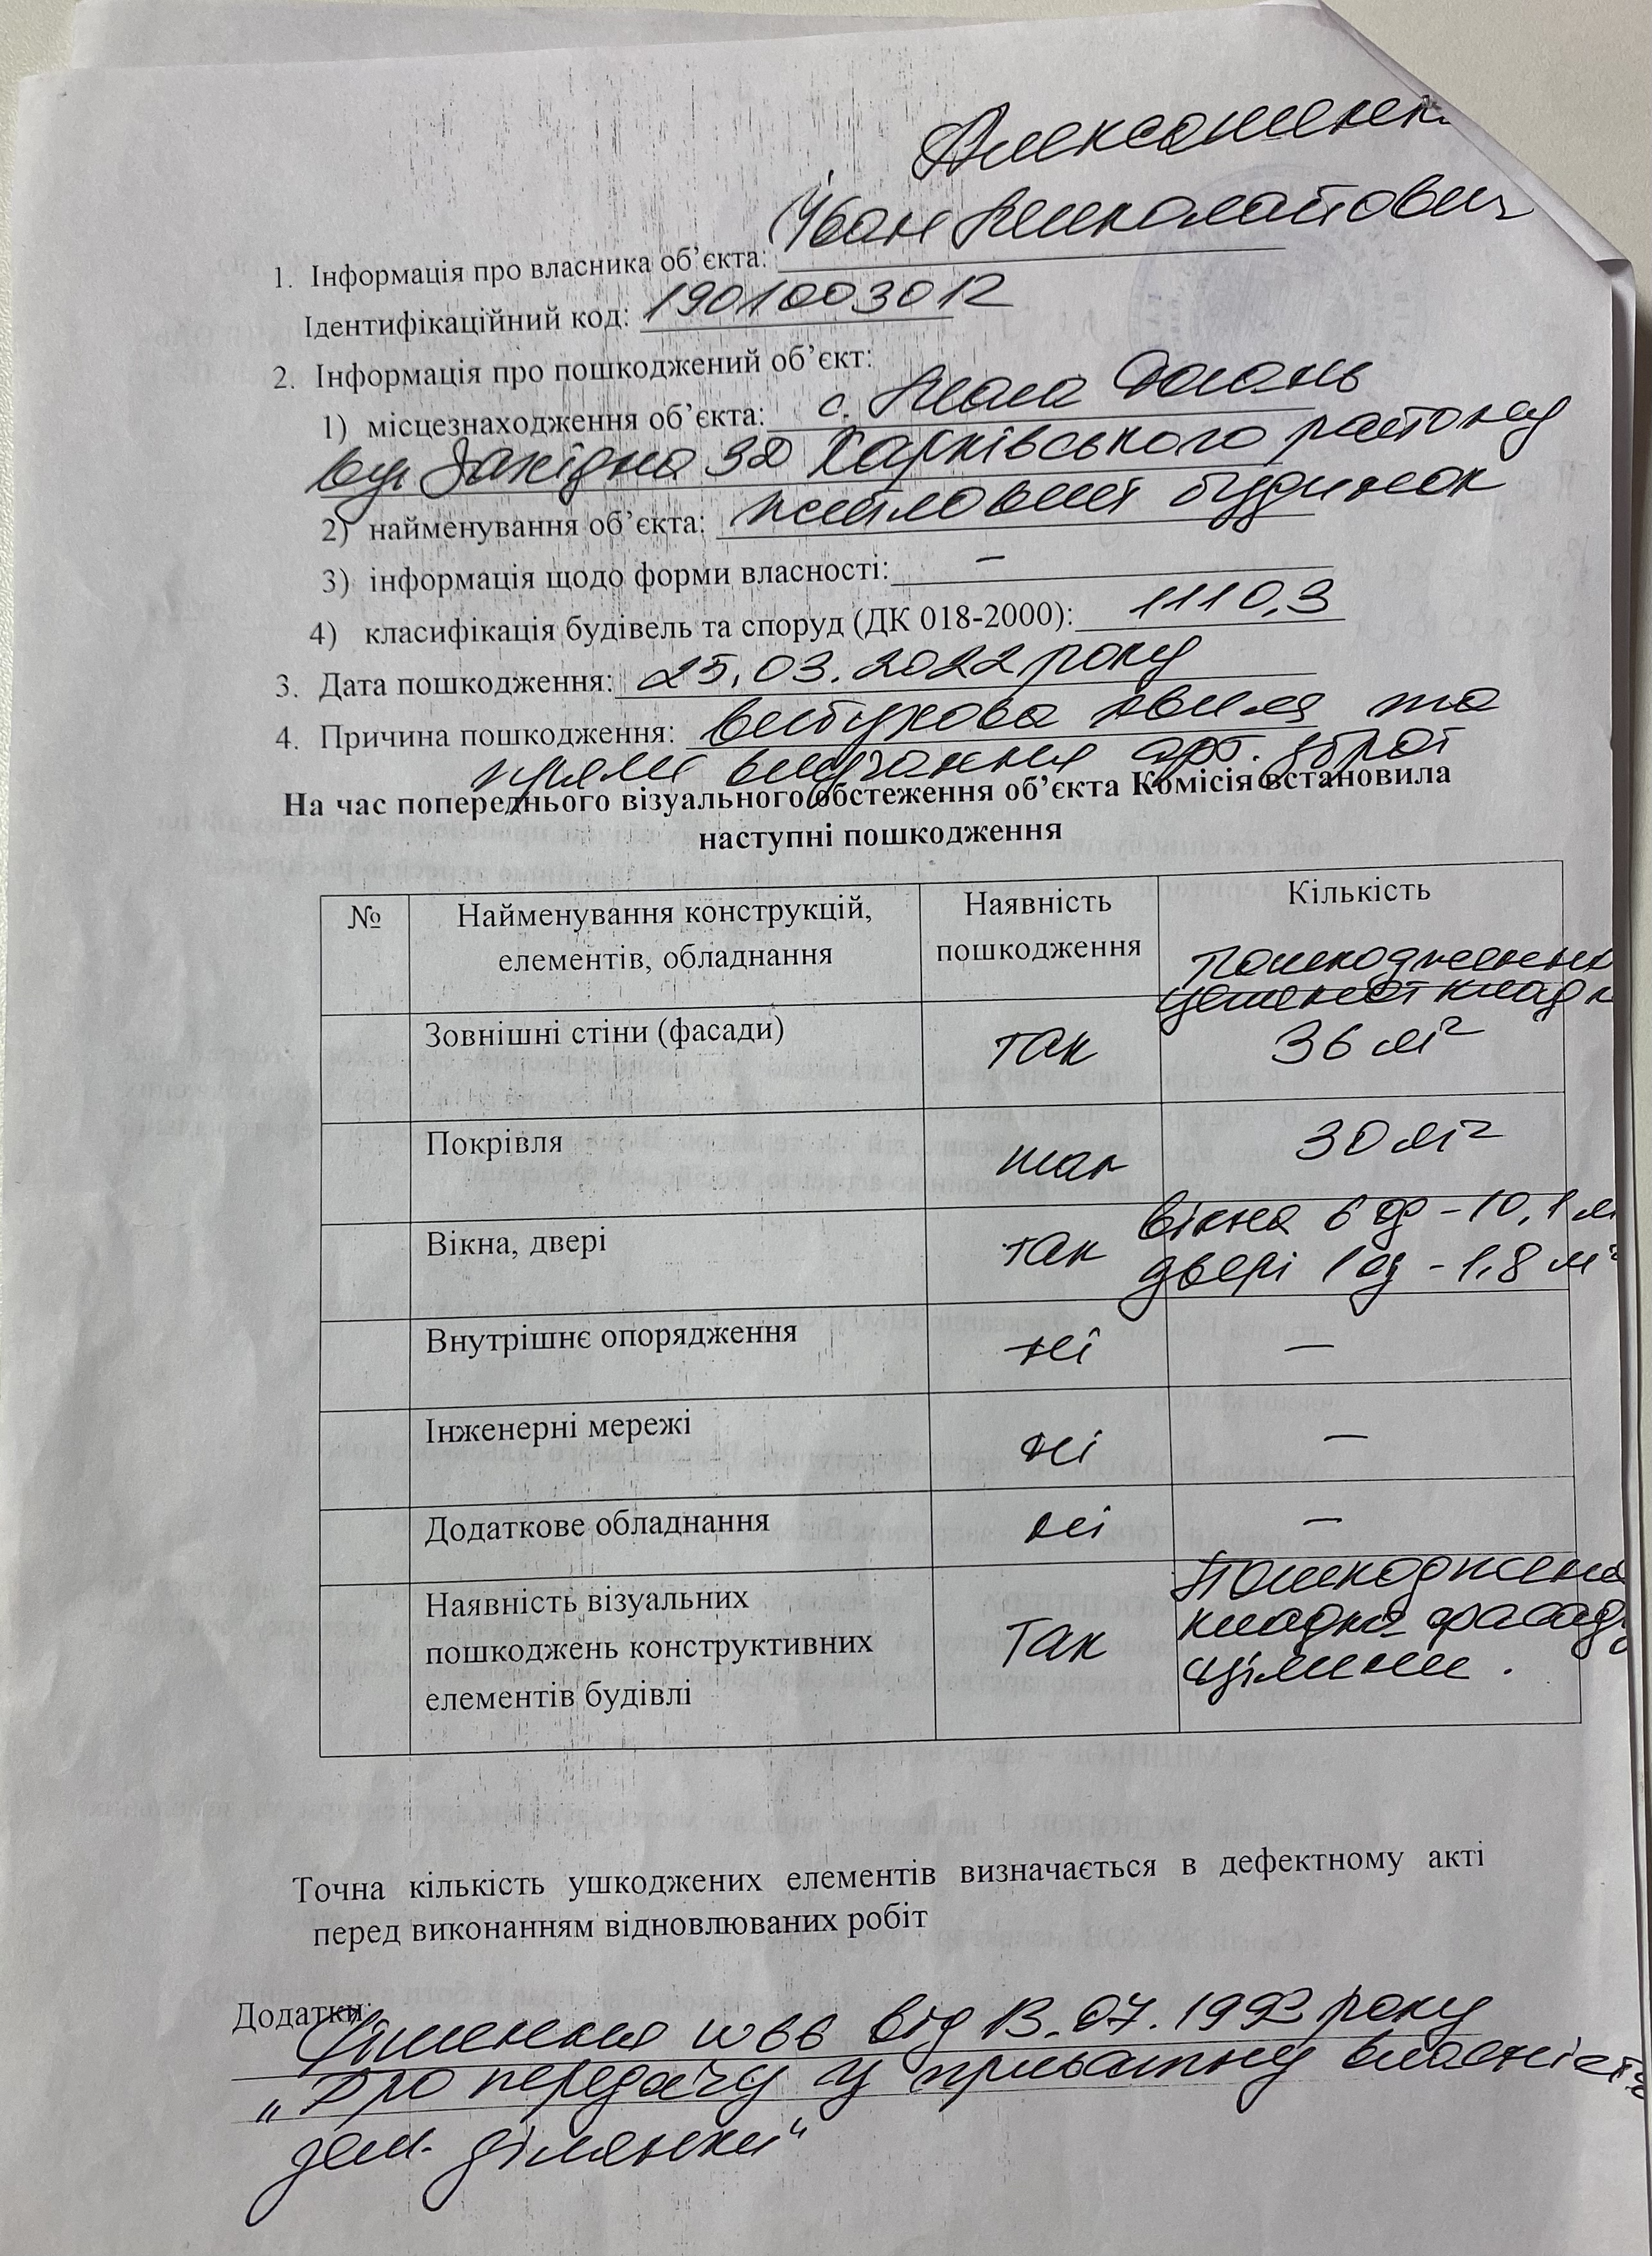 Алексашенк
Іван Миколайович
1. Інформація про власника об’єкта:
Ідентифікаційний код: 1901003012
2. Інформація про пошкоджений об’єкт:
1) місцезнаходження об’єкта: с. Мала
вул Західна 32 Харківського району
2) найменування об’єкта: житловий будинок
3) інформація щодо форми власності: –
4) класифікація будівель та споруд (ДК 018-2000): 1110,3
3. Дата пошкодження: 25.03.2022 року
4. Причина пошкодження: вибухова хвиля та
прямі влучання арт. зброї
На час попереднього візуального обстеження об’єкта Комісія встановила
наступні пошкодження
№ Найменування конструкцій, елементів, обладнання Наявність пошкодження Кількість
Пошкодження
цегляної кладк
Зовнішні стіни (фасади) так 36 м²
Покрівля так 30 м²
Вікна, двері так вікна 6 од – 10,1 м
двері 1 од – 1,8 м²
Внутрішнє опорядження ні –
Інженерні мережі ні –
Додаткове обладнання ні –
Наявність візуальних
пошкоджень конструктивних
елементів будівлі Так Пошкоджена
кладка фасаду
Точна кількість ушкоджених елементів визначається в дефектному акті
перед виконанням відновлюваних робіт
Додатки: Рішення №66 від 13.07.1993 року
„Про передачу у приватну власність
зем. ділянки“